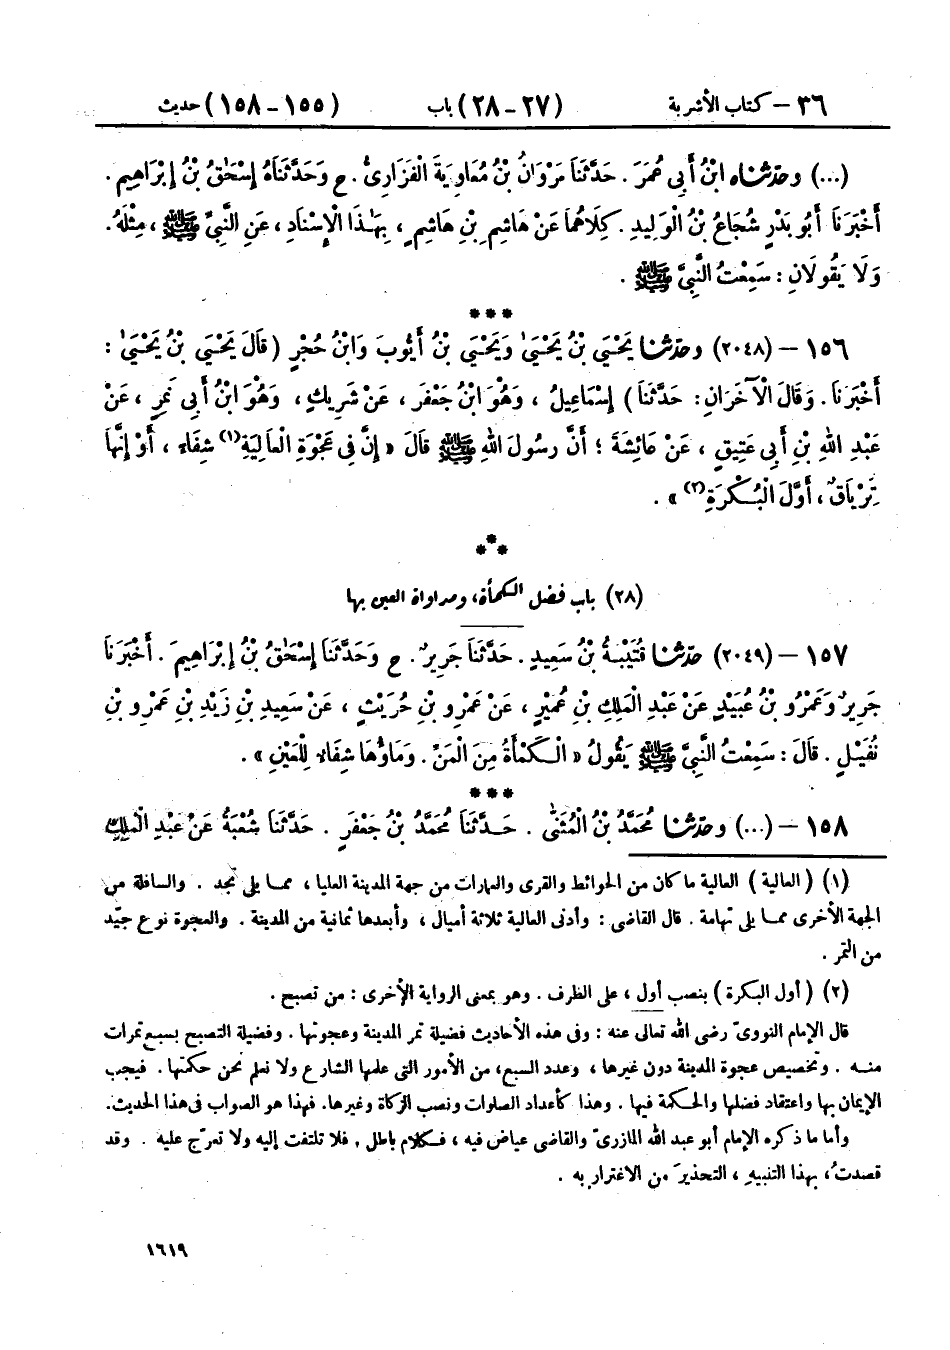 ٣٦ – كتاب الأشربة (٢٧-٢٨) باب (١٥٥-١٥٨) حديث
(...) وحَدَّثَنَاه ابْنُ أَبِي عُمَرَ. حَدَّثَنَا مَرْوَانُ بْنُ مُعَاوِيَةَ الْفَزَارِيُّ. ع وَحَدَّثَنَاهُ إِسْحَٰقُ بْنُ إِبْرَاهِيمَ.
أَخْبَرَنَا أَبُو بَدْرٍ شُجَاعُ بْنُ الْوَلِيدِ. كِلَاهُمَا عَنْ هَاشِمِ بْنِ هَاشِمٍ، بِهَٰذَا الْإِسْنَادِ، عَنِ النَّبِيِّ ﷺ، مِثْلَهُ.
وَلَا يَقُولَانِ: سَمِعْتُ النَّبِيَّ ﷺ.
***
١٥٦ – (٢٠٤٨) وحَدَّثَنَا يَحْيَى بْنُ يَحْيَىٰ وَيَحْيَى بْنُ أَيُّوبَ وَابْنُ حُجْرٍ (قَالَ يَحْيَى بْنُ يَحْيَىٰ:
أَخْبَرَنَا. وَقَالَ الْآخَرَانِ: حَدَّثَنَا) إِسْمَاعِيلُ، وَهُوَ ابْنُ جَعْفَرٍ، عَنْ شَرِيكٍ، وَهُوَ ابْنُ أَبِي نَمِرٍ، عَنْ
عَبْدِ اللهِ بْنِ أَبِي عَتِيقٍ، عَنْ عَائِشَةَ؛ أَنَّ رَسُولَ اللهِ ﷺ قَالَ «إِنَّ فِي عَجْوَةِ الْعَالِيَةِ(١) شِفَاءً، أَوْ إِنَّهَا
تِرْيَاقٌ، أَوَّلَ الْبُكْرَةِ(٢)».
***
(٢٨) باب فضل الكمأة، ومداواة العين بها
١٥٧ – (٢٠٤٩) حَدَّثَنَا قُتَيْبَةُ بْنُ سَعِيدٍ. حَدَّثَنَا جَرِيرٌ. ع وَحَدَّثَنَا إِسْحَٰقُ بْنُ إِبْرَاهِيمَ. أَخْبَرَنَا
جَرِيرٌ وَعَمْرُو بْنُ عُبَيْدٍ عَنْ عَبْدِ الْمَلِكِ بْنِ عُمَيْرٍ، عَنْ عَمْرِو بْنِ حُرَيْثٍ، عَنْ سَعِيدِ بْنِ زَيْدِ بْنِ عَمْرِو بْنِ
نُفَيْلٍ. قَالَ: سَمِعْتُ النَّبِيَّ ﷺ يَقُولُ «الْكَمْأَةُ مِنَ الْمَنِّ. وَمَاؤُهَا شِفَاءٌ لِلْعَيْنِ».
***
١٥٨ – (...) وحَدَّثَنَا مُحَمَّدُ بْنُ الْمُثَنَّىٰ. حَدَّثَنَا مُحَمَّدُ بْنُ جَعْفَرٍ. حَدَّثَنَا شُعْبَةُ عَنْ عَبْدِ الْمَلِكِ
(١) (العالية) العالية ما كان من الحوائط والقرى والعمارات من جهة المدينة العليا، مما يلي نجد. والسافلة من
الجهة الأخرى مما يلي تهامة. قال القاضي: وأدنى العالية ثلاثة أميال، وأبعدها ثمانية من المدينة. والعجوة نوع جيّد
من التمر.
(٢) (أول البكرة) بنصب أول، على الظرف. وهو بمعنى الرواية الأخرى: من تصبح.
قال الإمام النوويّ رضي الله تعالى عنه: وفي هذه الأحاديث فضيلة تمر المدينة وعجوتها. وفضيلة التصبح بسبع تمرات
منه. وتخصيص عجوة المدينة دون غيرها، وعدد السبع، من الأمور التي علمها الشارع ولا نعلم نحن حكمتها. فيجب
الإيمان بها واعتقاد فضلها والحكمة فيها. وهذا كأعداد الصلوات ونصب الزكاة وغيرها. فهذا هو الصواب في هذا الحديث.
وأما ما ذكره الإمام أبو عبد الله المازريّ والقاضي عياض فيه، فكلام باطل, فلا تلتفت إليه ولا تعرّج عليه. وقد
قصدتُ، بهذا التنبيهِ، التحذيرَ من الاغترار به.
١٦١٩